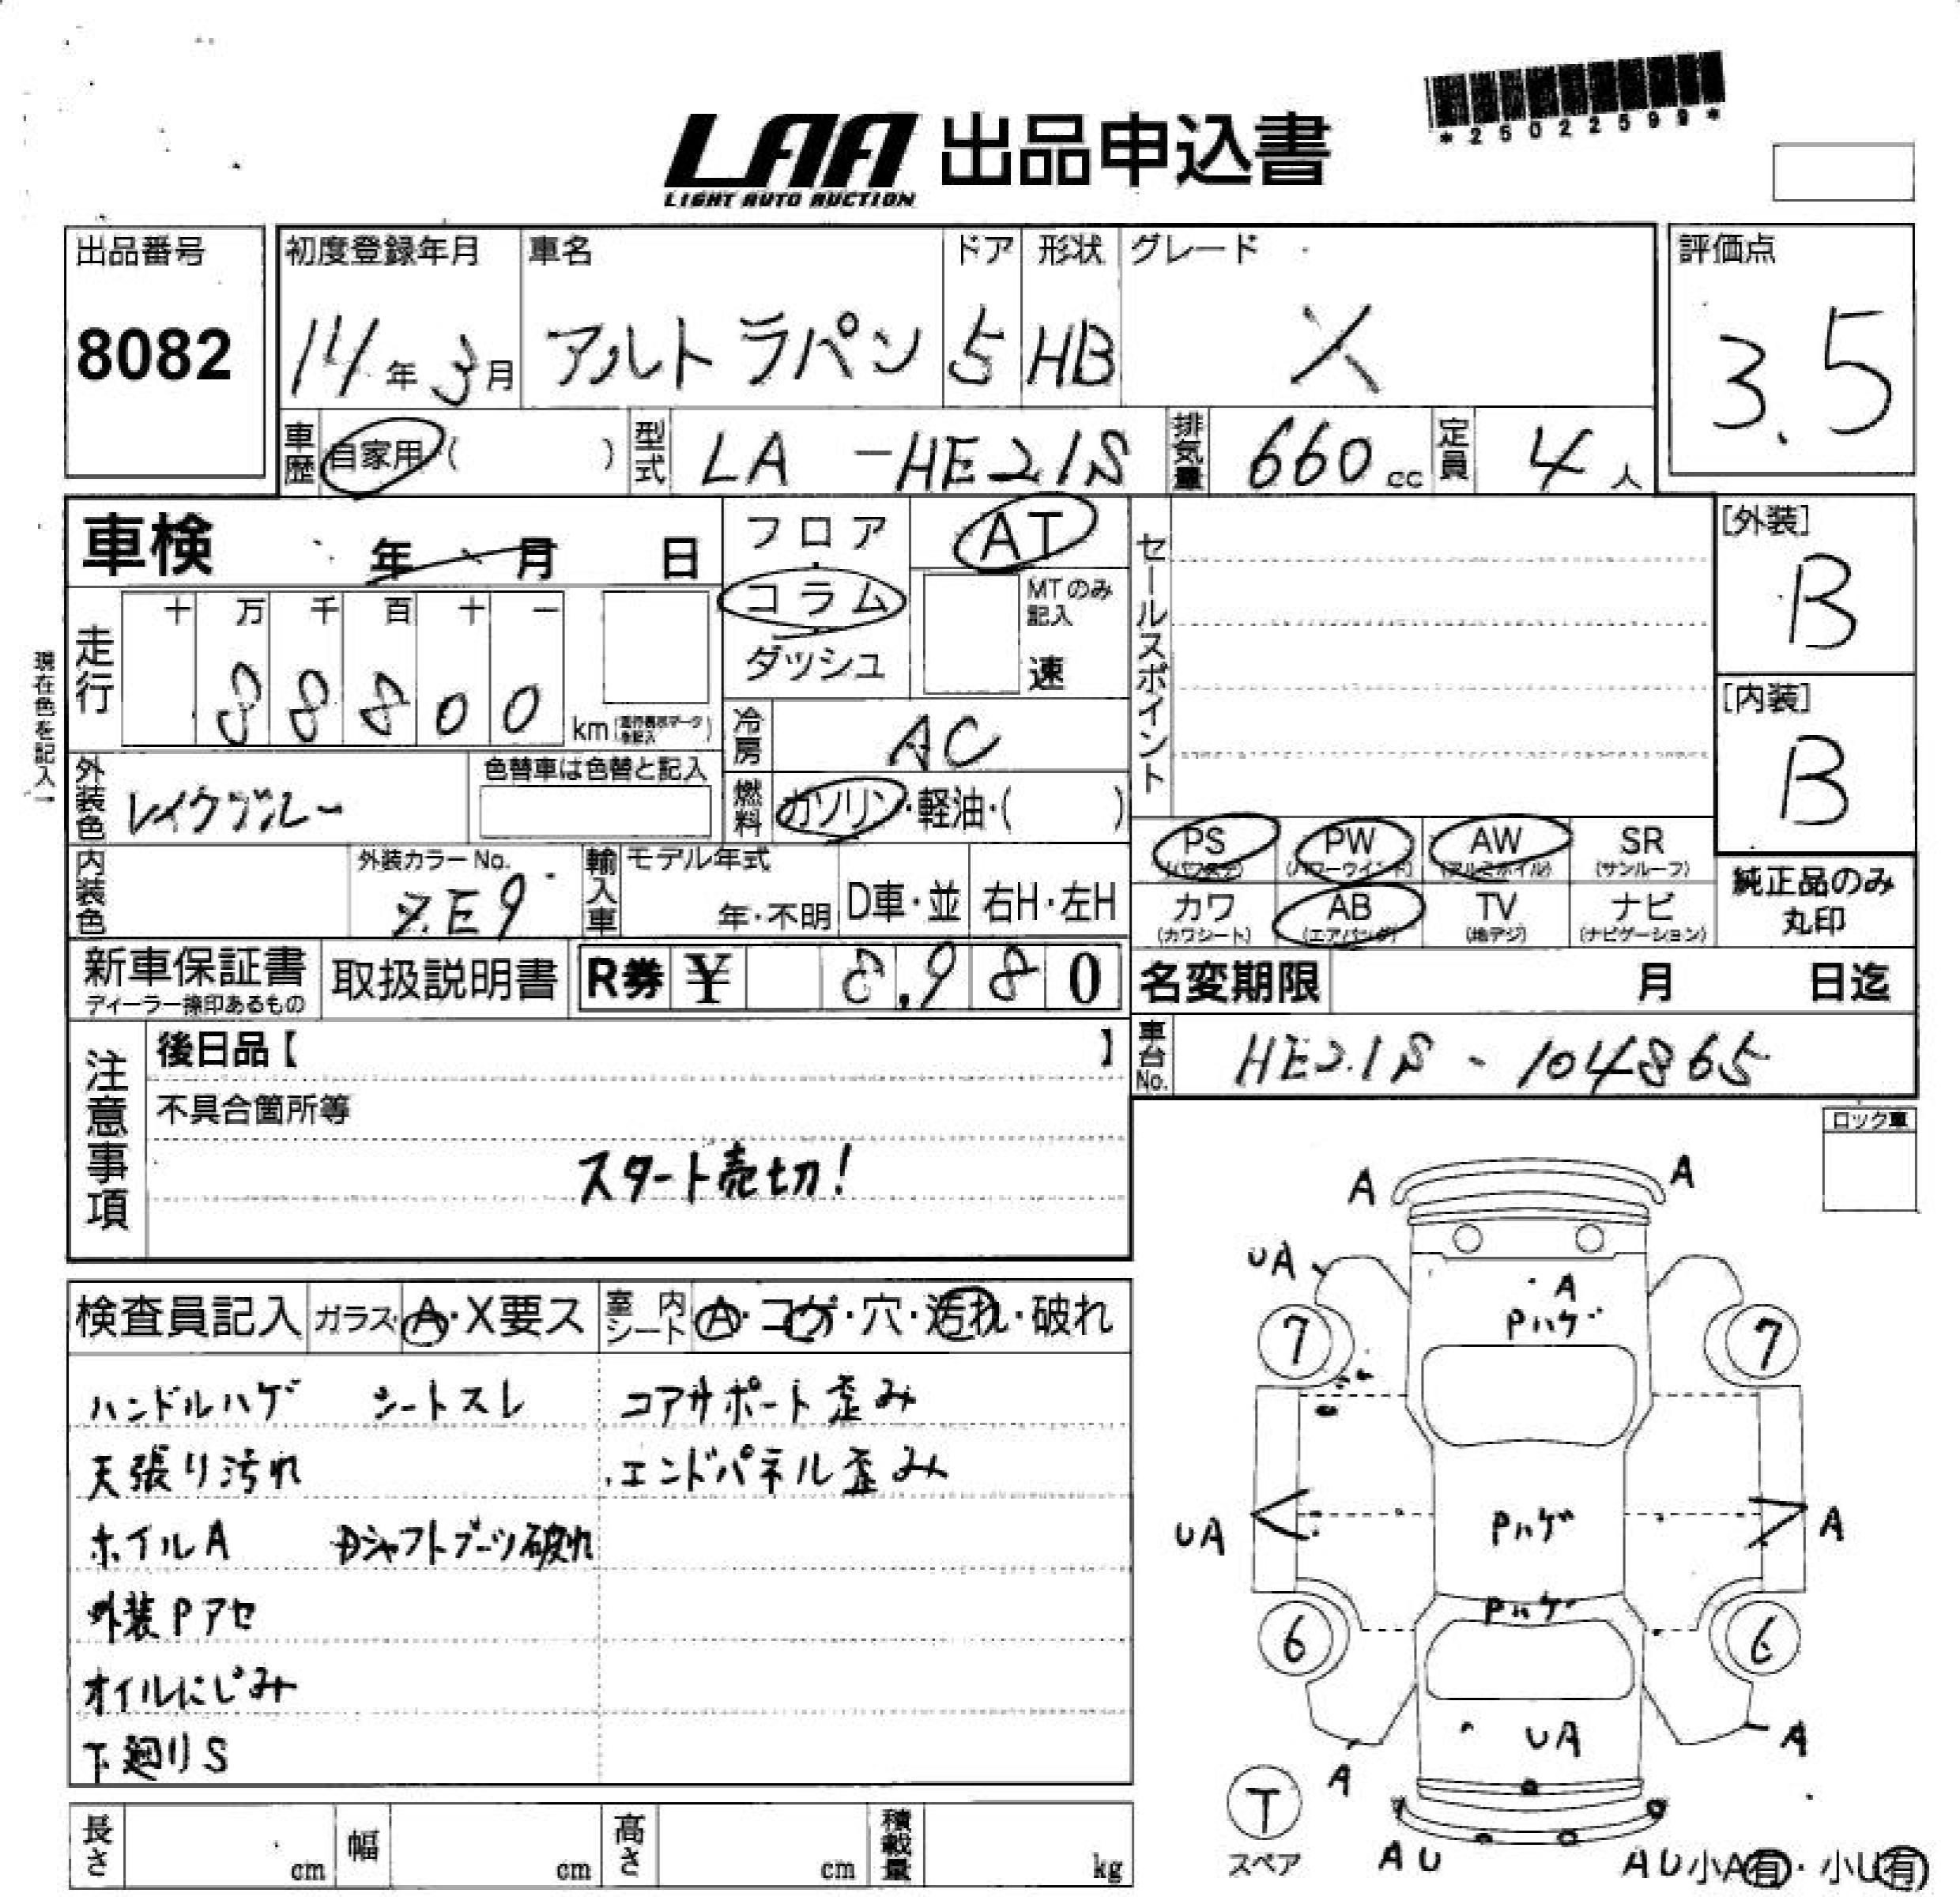 *25022599*
LAA 出品申込書
LIGHT AUTO AUCTION
出品番号 初度登録年月 車名 ドア 形状 グレード 評価点
8082 14年 3月 アルトラパン 5 HB X 3.5
車歴 自家用 ( ) 型式 LA -HE21S 排気量 660 cc 定員 4 人
車検 年 月 日 フロア AT セールスポイント [外装]
コラム MTのみ記入 B
ダッシュ 速
現在色を記入
走行 十 万 千 百 十 一
88800 km
冷房 AC [内装]
B
外装色 レイクブルー 色替車は色替と記入 燃料 ガソリン・軽油・( )
PS (パワステ) PW (パワーウインド) AW (アルミホイル) SR (サンルーフ)
内装色 外装カラーNo. ZE9 輸入車 モデル年式 年・不明 D車・並 右H・左H
カワ (カワシート) AB (エアバッグ) TV (地デジ) ナビ (ナビゲーション) 純正品のみ丸印
新車保証書 取扱説明書 R券 ¥ 8.980 名変期限 月 日迄
ディーラー捺印あるもの
注意事項 後日品【 】 車台No. HE21S - 104865
不具合箇所等
スタート売切!
ロック車
検査員記入 ガラス A・X要ス 室内シート A・コゲ・穴・汚れ・破れ
ハンドルハゲ シートスレ コアサポート歪み
天張り汚れ エンドパネル歪み
ホイルA Dシャフトブーツ破れ
外装Pアセ
オイルにじみ
下廻りS
A A
UA A
Pハゲ
7 7
UA Pハゲ A
Pハゲ
6 6
UA
A A
T
スペア AU AU 小A有・小U有
長さ cm 幅 cm 高さ cm 積載量 kg